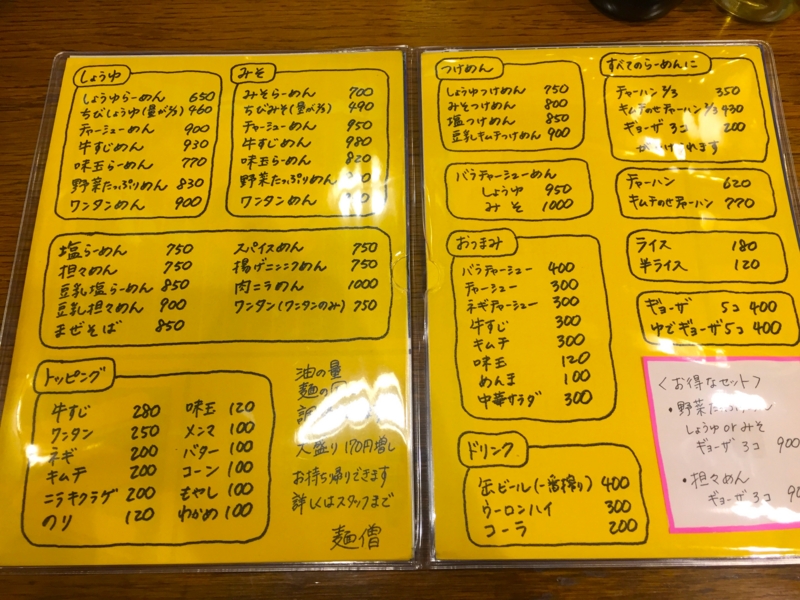 しょうゆ
しょうゆらーめん 650
ちびしょうゆ(量が2/3) 460
チャーシューめん 900
牛すじめん 930
味玉らーめん 770
野菜たっぷりめん 830
ワンタンめん 900
みそ
みそらーめん 700
ちびみそ(量が2/3) 490
チャーシューめん 950
牛すじめん 980
味玉らーめん 820
野菜たっぷりめん
ワンタンめん
塩らーめん 750
担々めん 750
豆乳塩らーめん 850
豆乳担々めん 900
まぜそば 850
スパイスめん 750
揚げニンニクめん 750
肉ニラめん 1000
ワンタン(ワンタンのみ) 750
トッピング
牛すじ 280
ワンタン 250
ネギ 200
キムチ 200
ニラキクラゲ 200
のり 120
味玉 120
メンマ 100
バター 100
コーン 100
もやし 100
わかめ 100
油の量
麺の
大盛り170円増し
お持ち帰りできます
詳しくはスタッフまで
麺僧
つけめん
しょうゆつけめん 750
みそつけめん 800
塩つけめん 850
豆乳キムチつけめん 900
バラチャーシューめん
しょうゆ 950
みそ 1000
おつまみ
バラチャーシュー 400
チャーシュー 300
ネギチャーシュー 300
牛すじ 300
キムチ 300
味玉 120
めんま 100
中華サラダ 300
ドリンク
缶ビール(一番搾り) 400
ウーロンハイ 300
コーラ 200
すべてのらーめんに
チャーハン2/3 350
キムチのせチャーハン2/3 430
ギョーザ3コ 200
がつけられます
チャーハン 620
キムチのせチャーハン 770
ライス 180
半ライス 120
ギョーザ 5コ 400
ゆでギョーザ 5コ 400
<お得なセット>
・野菜たっぷりめん
しょうゆ or みそ
ギョーザ 3コ 900
・担々めん
ギョーザ 3コ